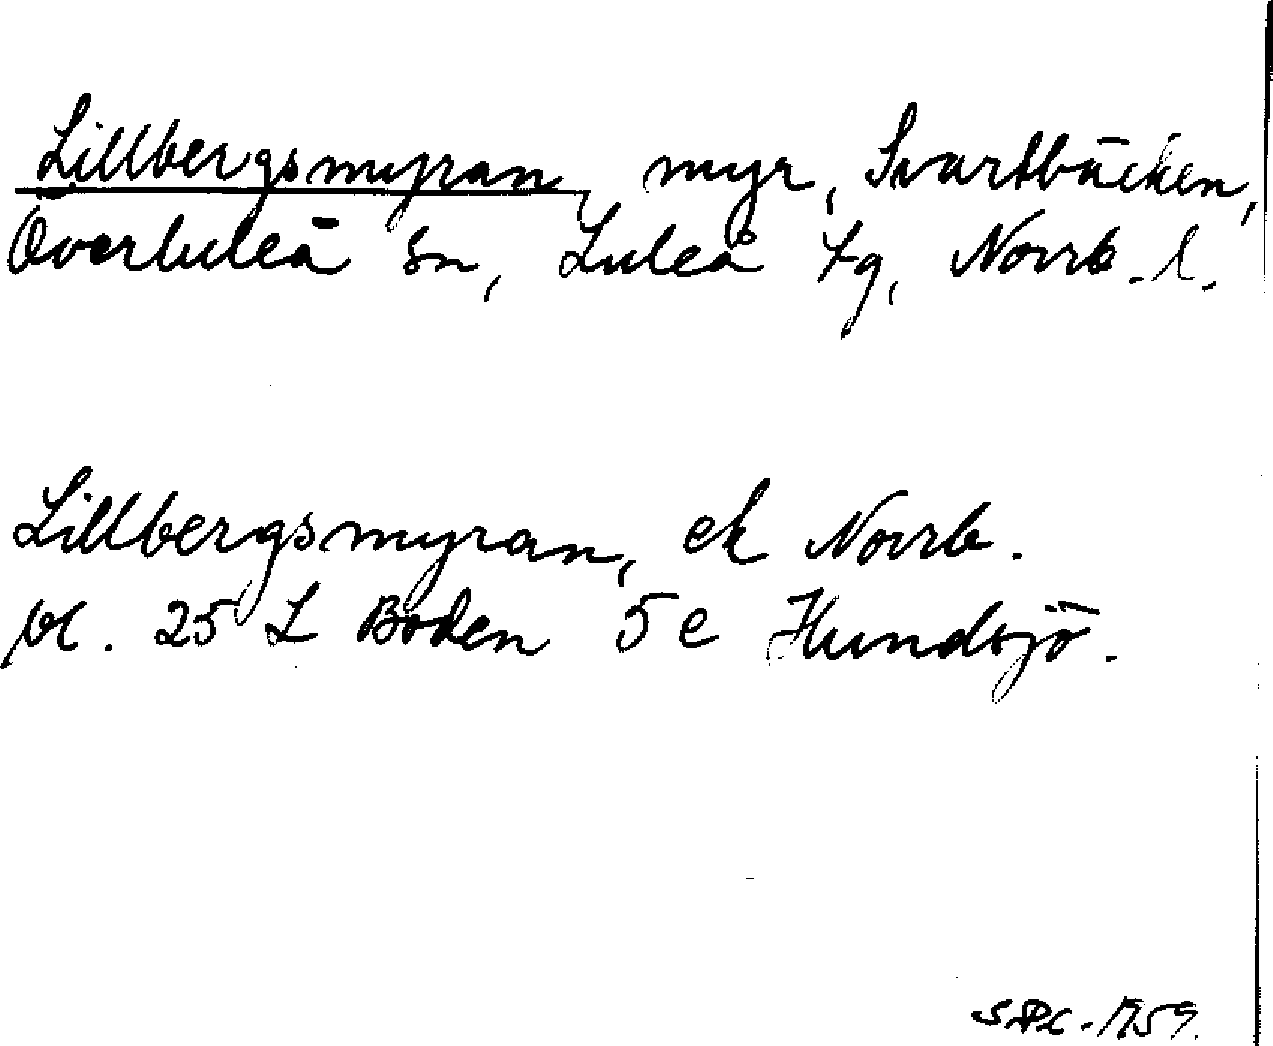 Lillbergsmyran, myr, Svartbäcken,
Överluleå sn, Luleå tg, Norrb. l.
Lillbergsmyran, ek Norrb.
bl. 25 L Boden 5 e Hundsjö.
1959.